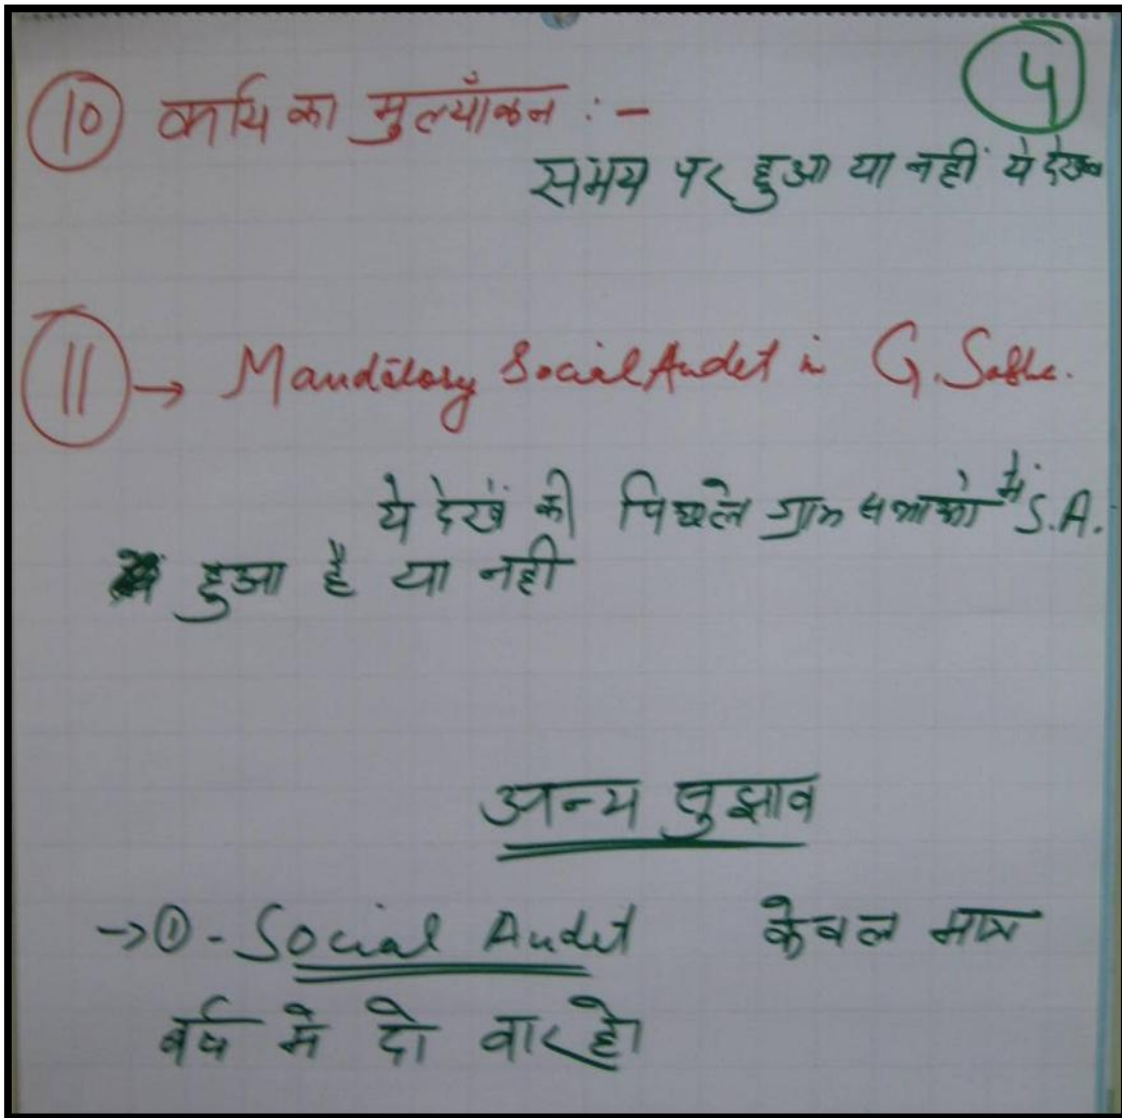 4
10 कार्य का मुल्याँकन :-
समय पर हुआ या नहीं ये देखे
11 → Manditory Social Audit in G. Sabha.
ये देखें की पिछले ग्राम सभाओ में S.A.
हुआ है या नही
अन्य सुझाव
→ ① - Social Audit केवल मात्र
वर्ष मे दो वार हो